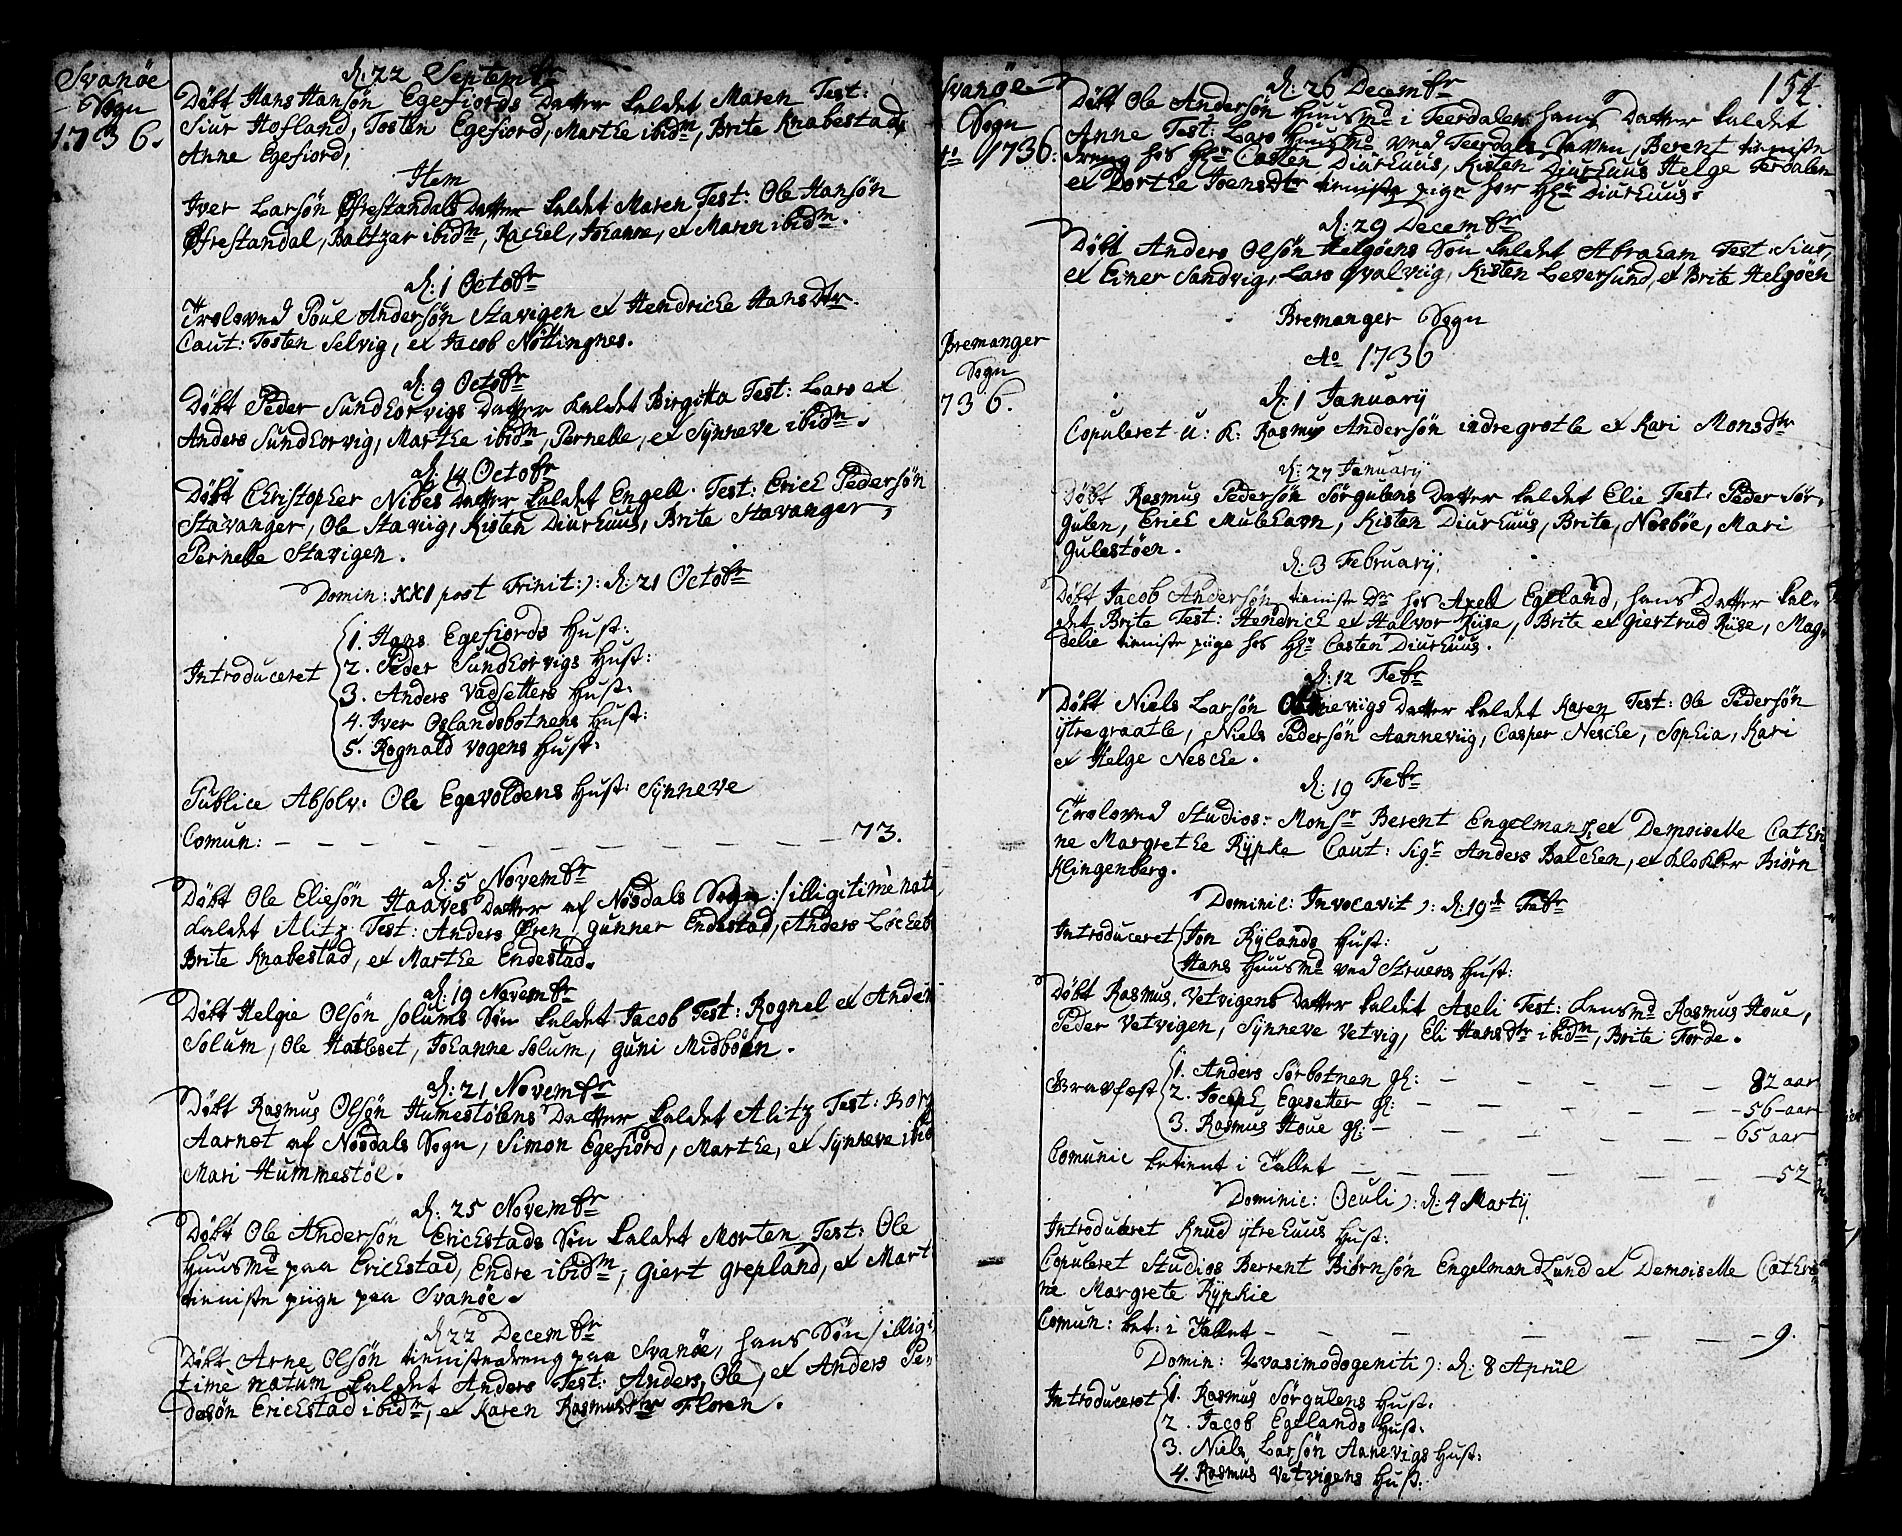 Svanöe
Sogn
1736.
d: 22 Septembr
Döbt Hans Hansön Egefiords Datter kaldet Maren Test:
Siur Hofland, Tosten Egefiord, Marthe ibidm, Brite Knabestad,
Anne Egefiord,
Item
Iver Larsön Öfrestandals Datter kaldet Maren Test: Ole Hansön
Öfrestandal, Baltzar ibidm, Rachel, Johanne, et Maren ibidm.
d: 1 Octobr
Troloved Poul Andersön Stavigen et Hendriche Hansdtr.
Caut: Tosten Selvig, et Jacob Nöttingnes.
d: 9 Octobr
Döbt Peder Sundhorvigs Datter kaldet Birgitta Test: Lars et
Anders Sundhorvig, Marthe ibidm, Pernelle, et Synneve ibidm.
d: 14 Octobr
Döbt Christopher Nibes Datter kaldet Engell. Test: Erich Pedersön
Stavanger, Ole Staviig, Kisten Diurhuus, Brite Stavanger,
Pernelle Stavigen.
Domin: XXI post Trinit: ): d: 21 Octobr
Introduceret
1. Hans Egefiords Hust:
2. Peder Sundhorvigs Hust:
3. Anders Vadsetters Hust:
4. Iver Oslandsbotnens Hust:
5. Rognald Vogens Hust:
Publice Absolv. Ole Egevoldens Hust: Synneve
Comun: — — — — — — — — 73.
d: 5 Novembr
Döbt Ole Eliesön Haaves Datter af Nösdals Sogn :/illigitimè nata
kaldet Alitz Test: Anders Øren, gunner Endestad, Anders Löcheb
Brite Knabestad, et Marthe Endestad.
d: 19 Novembr
Döbt Helgie Olsön Solums Sön kaldet Jacob Test: Rognel et Anders
Solum, Ole Hatleset, Johanne Solum, guni Midböen.
d: 21 Novembr
Döbt Rasmus Olsön Humestölens Datter kaldet Alitz Test:
Aarnöt af Nösdals Sogn, Simon Egefiord, Marthe, et Synneve ibid
Mari Hummestöl.
d: 25 Novembr
Döbt Ole Andersön Erichstads Sön kaldet Morten Test: Ole
Huusmd paa Erichstad, Endre ibidm, Giert grepland, et Mart
tieniste piige paa Svanöe.
d: 22 Decembr
Döbt Arne Olsön tienistedreng paa Svanöe, hans Sön /illigi-
timè natum kaldet Anders Test: Anders, Ole, et Anders Pe-
dersön Erichstad ibidm, et Karen Rasmusdtr Floren.
Svanöe
Sogn
Ao 1736.
154.
d: 26 Decembr
Döbt Ole Andersön Huusmd i Teerdalen hans Datter kaldet
Anne Test: Lars Huusmd ved Teerdals Vattn, Berent tieniste
dreng hos Hr Casten Diurhuus, Kisten Diurhuus Helge Terdalen
et Dorthe Joensdtr tieniste pige hos Hr Diurhuus.
d: 29 Decembr
Döbt Anders Olsön Helgöens Sön kaldet Abraham Test: Siur,
et Einer Sandvig, Lars qvalviig, Kisten Leversund, et Brite Helgöen
Bremanger Sogn
Ao 1736
Bremanger
Sogn
736.
d: 1 January
Copuleret u: k: Rasmus Andersön indregrotle et Kari Monsdtr
d: 27 January
Döbt Rasmus Pedersön Sörgulens Datter kaldet Elie Test: Peder Sör-
gulen, Erich Mulehavn, Kisten Diurhuus, Brite, Nosböe, Mari
Gulestöen.
d: 3 February
Döbt Jacob Andersön tieniste Dr hos Axell Egeland, hans Datter kal-
det Brite Test: Hendrich et Halvor Riise, Brite et Giertrud Riise, Mag-
delie tieniste piige hos Hr Casten Diurhuus.
d: 12 Febr
Döbt Niels Larsön Datter kaldet Karen Test: Ole Pedersön
ijtregraatle, Niels Pedersön Aanneviig, Casper Nesche, Sophia, Kari
et Helge Nesche.
d: 19 Febr
Troloved Studios: Monsr Berent Engelmand et Demoiselle Cathri-
ne Margrethe Rypke Caut: Sigr Anders Balchen, et Klokker Biörn
Klingenberg.
Dominic: Invocavit ): d: 19de Febr
Introduceret
Jon Rylands Hust:
Hans Huusmd ved Struens Hust:
Döbt Rasmus Vetvigens Datter kaldet Aseli Test: Lensmd Rasmus Houe,
Peder Vetvigen, Synneve Vetvig, Eli Hansdtr ibidm, Brite Förde.
Gravfæst
1. Anders Sörbotnen gl: — — — — 82 aar
2. Joseph Egesetter gl: — — — — 56 aar
3. Rasmus Houe gl: — — — — 65 aar
Comunic betient i Tallet — — — — — 52
Dominic: Oculi ): d: 4 Martij
Introduceret Knud ijtrehuus Hust:
Copuleret Studios Berrent Biørnsön Engelmand Lund et Demoiselle Cathri-
ne Margrete Rypkie
Comun: bet: i Tallet — — — — — — 9.
Domin: Qvasimodogeniti ): d: 8 Apriil
Introduceret
1. Rasmus Sörgulens Hust:
2. Jacob Egelands Hust:
3. Niels Larsön Aanevigs Hust:
4. Rasmus Vetvigens Hust: